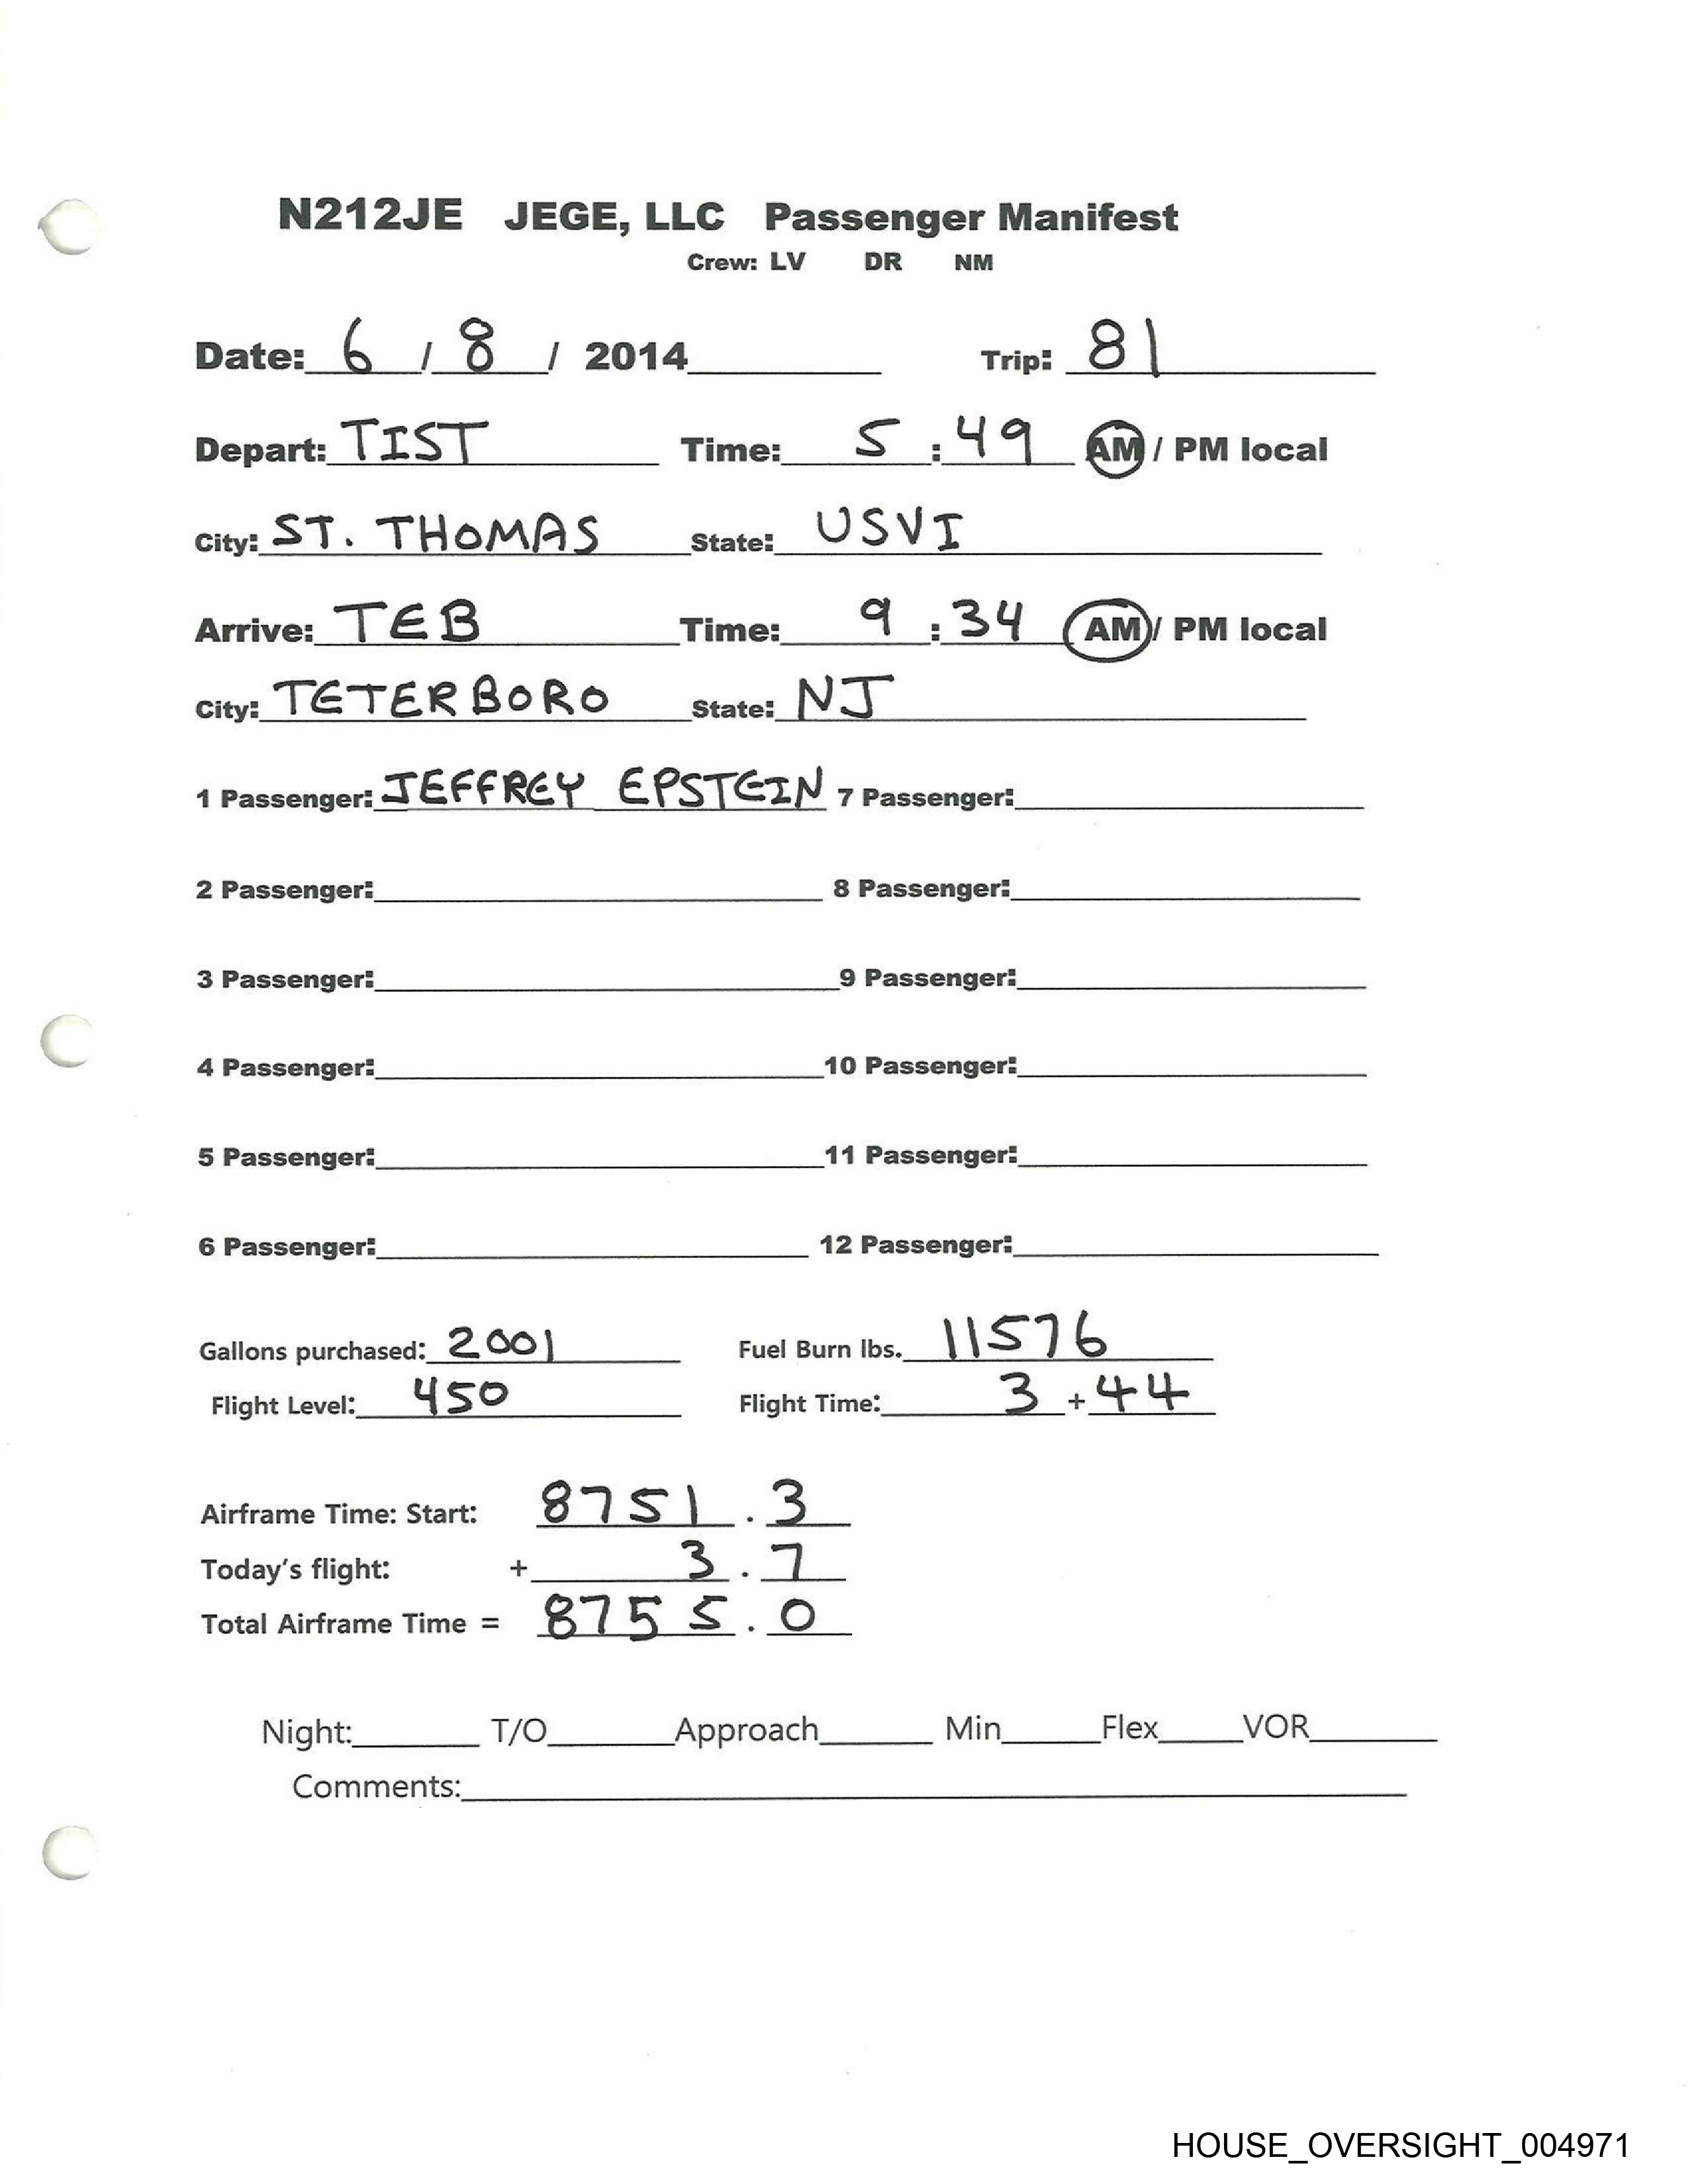 N212JE JEGE, LLC Passenger Manifest
Crew: LV DR NM
Date: 6 / 8 / 2014 Trip: 81
Depart: TIST Time: 5 : 49 AM / PM local
City: ST. THOMAS State: USVI
Arrive: TEB Time: 9 : 34 AM / PM local
City: TETERBORO State: NJ
1 Passenger: JEFFREY EPSTEIN 7 Passenger:
2 Passenger: 8 Passenger:
3 Passenger: 9 Passenger:
4 Passenger: 10 Passenger:
5 Passenger: 11 Passenger:
6 Passenger: 12 Passenger:
Gallons purchased: 2001 Fuel Burn lbs. 11576
Flight Level: 450 Flight Time: 3 + 44
Airframe Time: Start: 8751 . 3
Today's flight: + 3 . 7
Total Airframe Time = 8755 . 0
Night: T/O Approach Min Flex VOR
Comments:
HOUSE_OVERSIGHT_004971